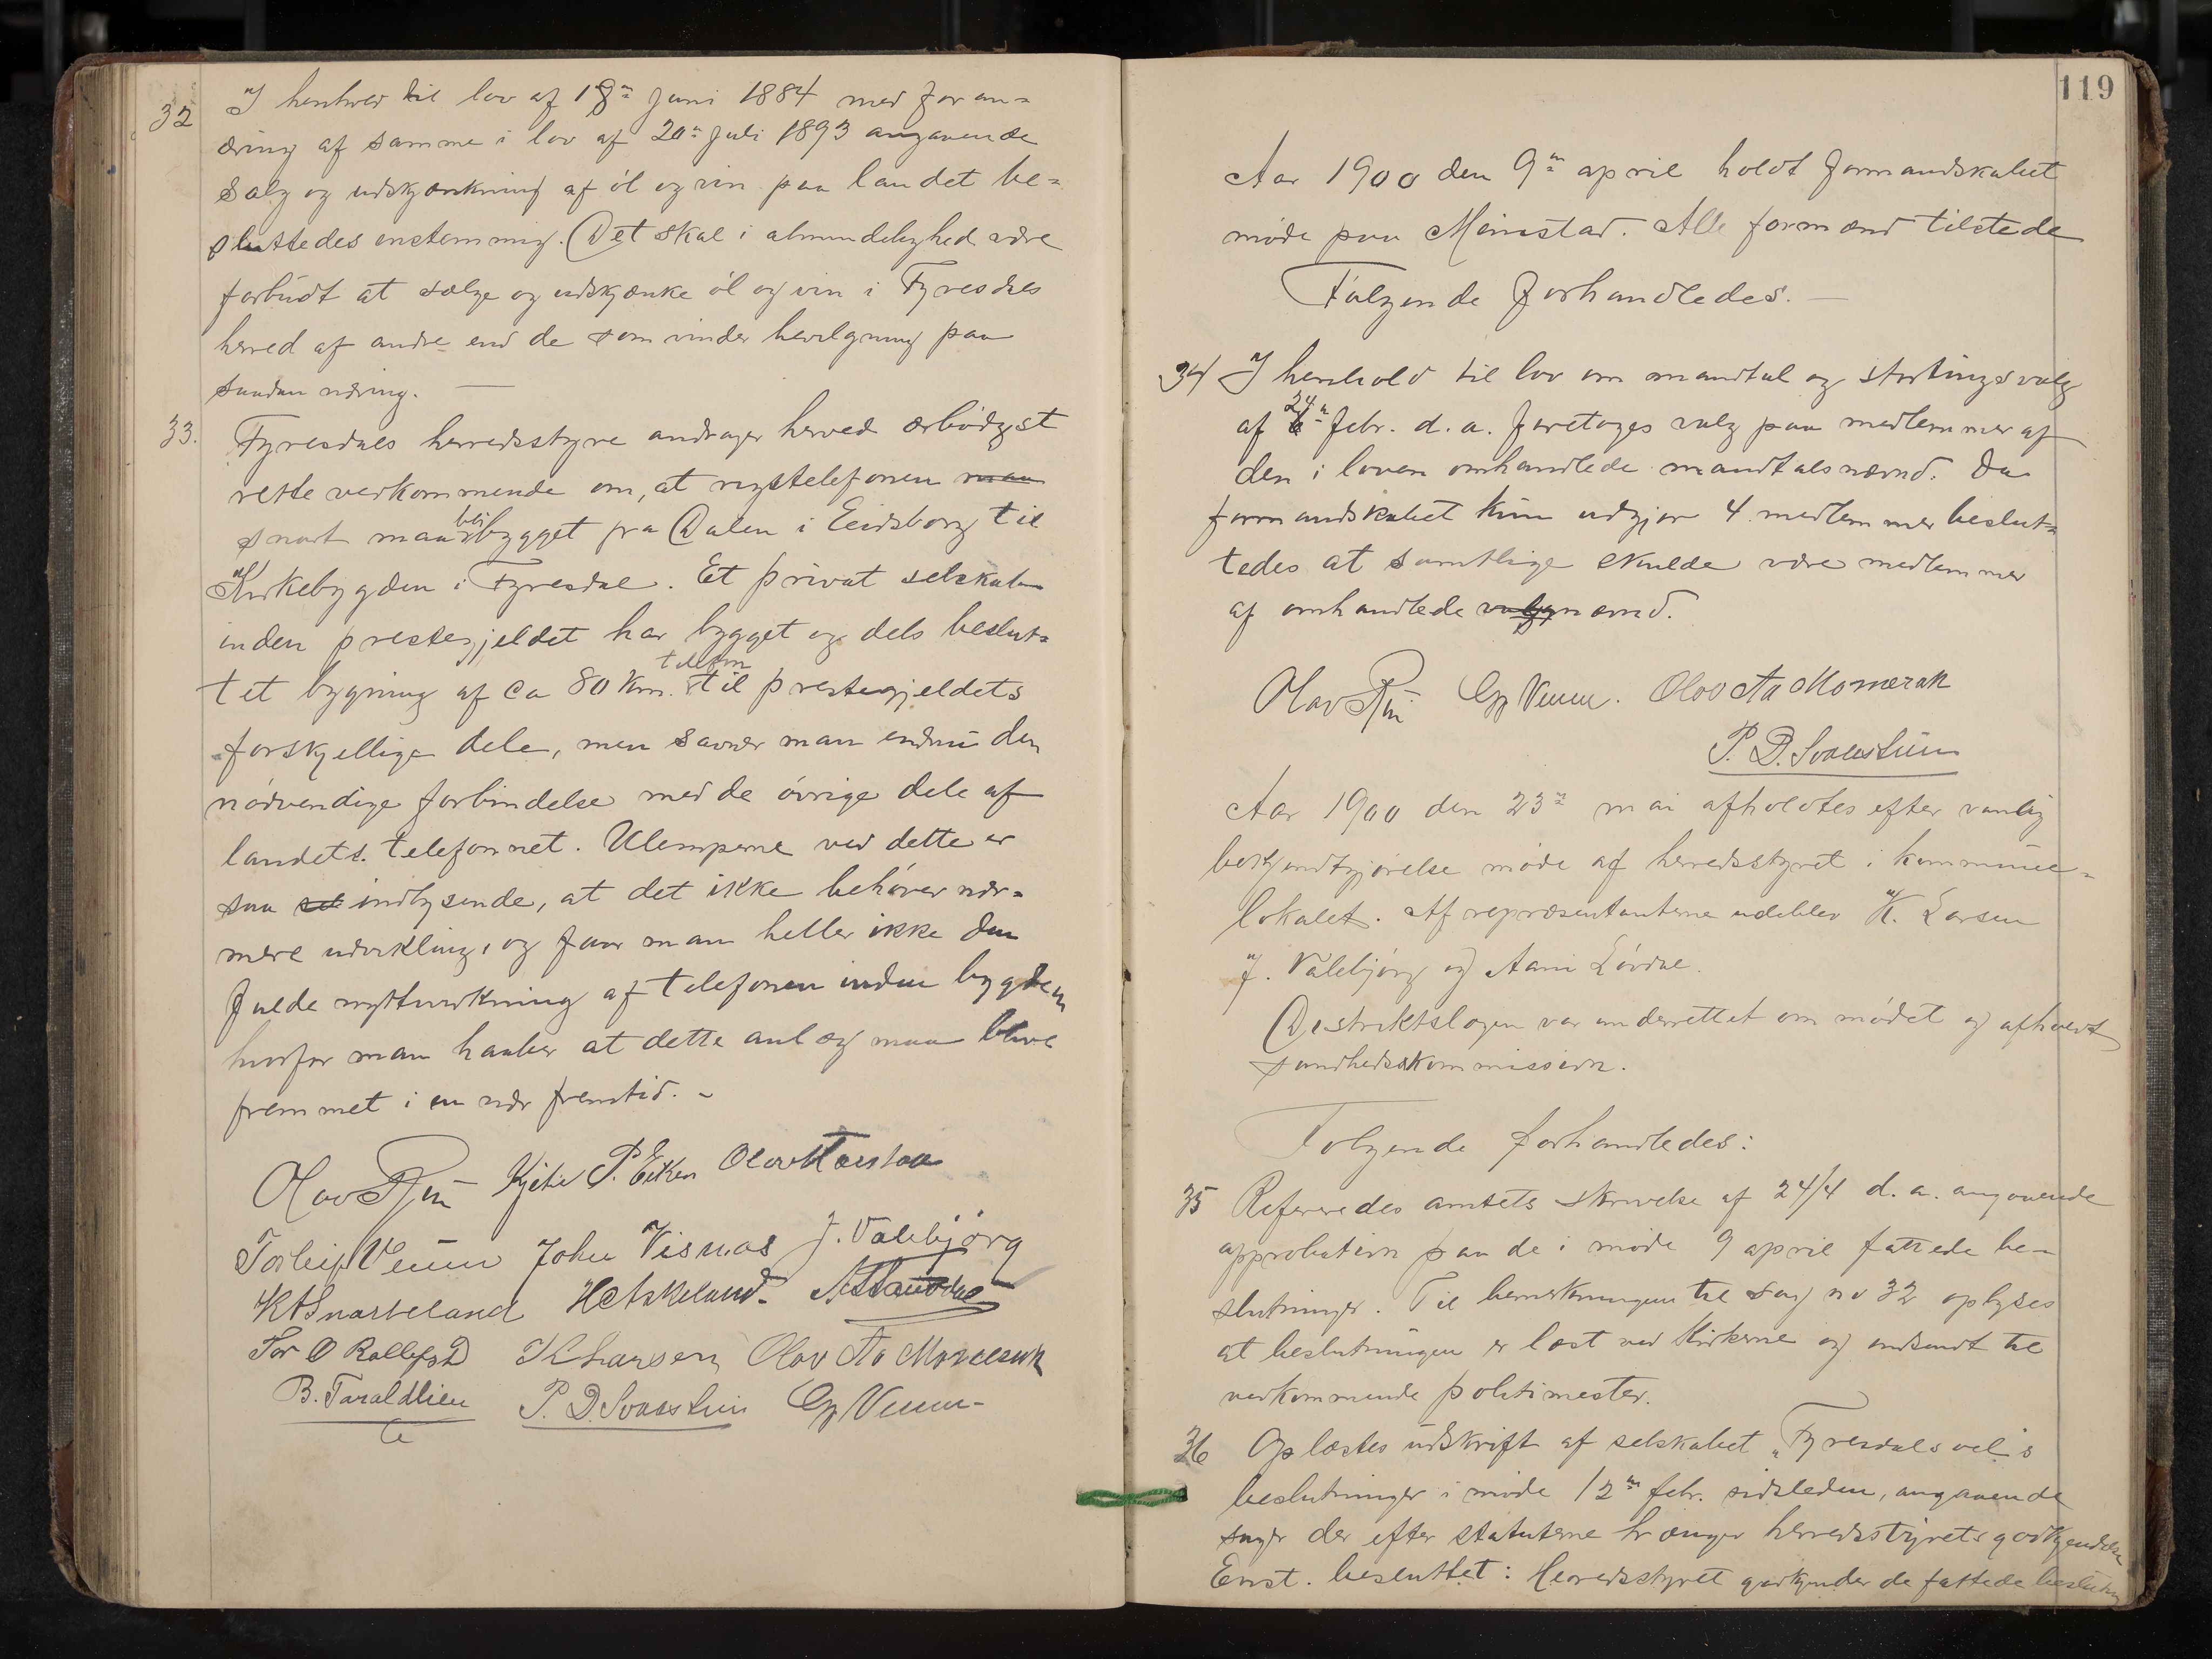 32 I henhold til lov af 18n Juni 1884 med foran=
dring af samme i lov af 20n Juli 1893 angaaende
salg og udskjænkning af øl og vin paa landet be=
sluttedes enstemmig. Det skal i almindelighed være
forbudt at sælge og udskjænke øl og vin i Fyresdals
herred af andre end de som vinder bevilgning paa
saadan næring. —
33. Fyresdals herredsstyre andrager herved ærbødigst
rette vedkommende om, at rigstelefonen maa
snart maa bli bygget fra Dalen i Eidsborg til
Kirkebygden i Fyresdal. Et privat selskab
inden prestegjeldet har bygget og dels beslut=
tet bygning af ca 80 km. telefon til prestegjeldets
forskjellige dele, men savner man endnu den
nødvendige forbindelse med de øvrige dele af
landets telefonnet. Ulemperne ved dette er
saa indlysende, at det ikke behøver nær=
mere udvikling, og faar man heller ikke den
fulde nyttevirkning af telefonen inden bygden
hvorfor man haaber at dette anlæg maa blive
fremmet i en nær fremtid. -
Olav Kjetil P. Eiken Olav
Torleif Veum John Visnas J. Valebjørg
K H Snarteland H Askeland
Tor O Rollefsd K Larsen Olav Aa Momrak
B. Taraldlien P. D. Svaastuen Gj Veum-
119
Aar 1900 den 9n april holdt formandskabet
møde paa Moinstad. Alle formænd tilstede
Følgende forhandledes. —
34 I henhold til lov om mandtal og stortingsvalg
af 24n febr. d. a. foretoges valg paa medlemmer af
den i loven omhandlede mandtalsnævnd. Da
formandskabet kun udgjør 4 medlemmer beslut=
tedes at samtlige skulde være medlemmer
af omhandlede valgnævnd.
Olav Gj Veum. Olav Aa Momrak
P. D. Svaastuen
Aar 1900 den 23n mai afholdtes efter vanlig
bekjendtgjørelse møde af herredsstyret i kommune=
lokalet. Af repræsentanterne udeblev K. Larsen
J. Valebjørg og Aani Lövdal.
Distriktslægen var underrettet om mødet og afholdt
sundhedskommission.
Følgende forhandledes:
35 Refereredes amtets skrivelse af 24/4 d. a. angaaende
approbation paa de i møde 9 april fattede be-
slutninger. Til bemerkningen til sag no 32 oplyses
at beslutningen er læst ved kirkerne og indsendt til
vedkommende politimester.
36 Oplæstes udskrift af selskabet "Fyresdals vel"s
beslutninger i møde 12n febr. sidstleden, angaaende
sager der efter statuterne trænger herredsstyrets godkjendelse
Enst. besluttet: Herredsstyret godkjender de fattede beslutning